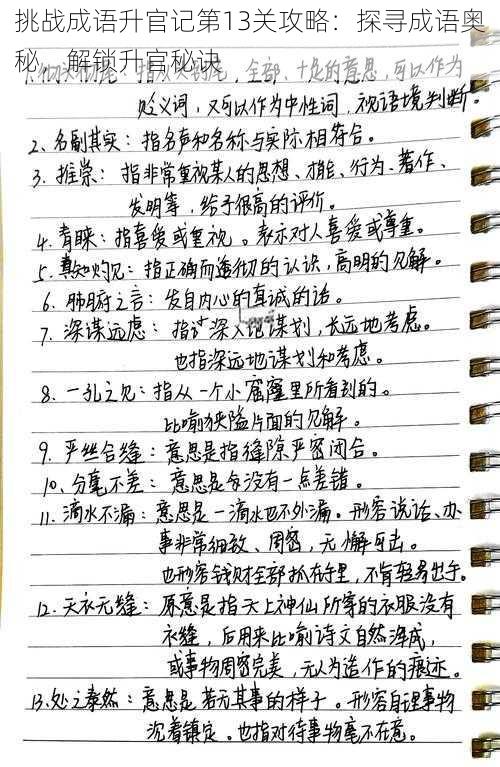 挑战成语升官记第13关攻略：探寻成语奥
秘，解锁升官秘诀
1.彻头彻尾：指从头到尾，全部、十足的意思，可以作为
贬义词，又可以作为中性词，视语境判断。
2、名副其实：指名声和名称与实际相符合。
3.推崇：指非常重视某人的思想、才能、行为、著作、
发明等，给予很高的评价。
4.青睐：指喜爱或重视。表示对人喜爱或尊重。
5.真知灼见：指正确而透彻的认识，高明的见解。
6.肺腑之言：发自内心的真诚的话。
7.深谋远虑：指计深入地谋划，长远地考虑。
也指深远地谋划和考虑。
8.一孔之见：指从一个小窟窿里所看到的。
比喻狭隘片面的见解。
9.严丝合缝：意思是指缝隙严密闭合。
10、分毫不差：意思是多没有一点差错。
11.滴水不漏：意思是一滴水也不外漏。形容说话、办
事非常细致、周密，无懈可击。
也形容钱财全部抓在手里，不肯轻易出手。
12.天衣无缝：原意是指天上神仙所穿的衣服没有
衣缝，后用来比喻诗文自然浑成，
或事物周密完美，无人为造作的痕迹。
13.处之泰然：意思是若无其事的样子。形容自理事物
沉着镇定。也指对待事物毫不在意。